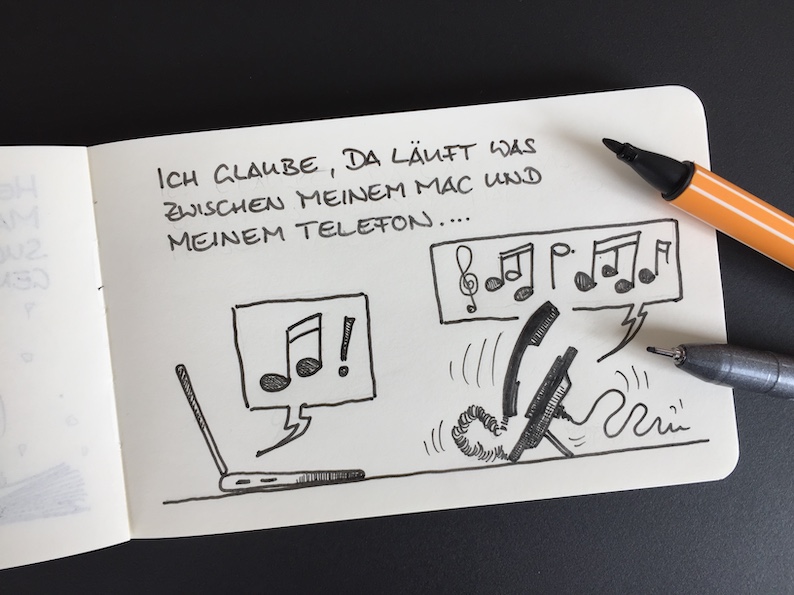 ICH GLAUBE, DA LÄUFT WAS
ZWISCHEN MEINEM MAC UND
MEINEM TELEFON....
!